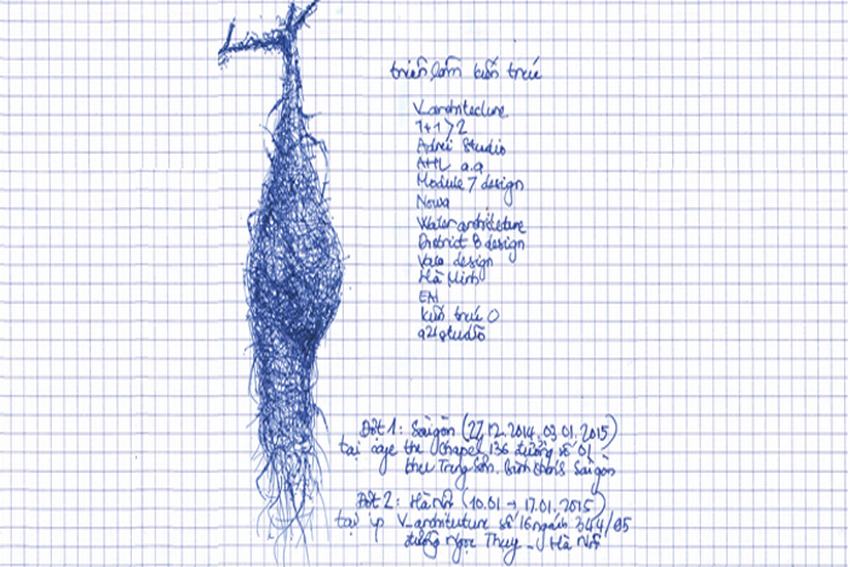 triển lãm kiến trúc
V_architecture
1+1>2
Adrei Studio
AHL a.a
Module 7 design
Nowa
Water architecture
District 8 design
Vaco design
Hà Minh
EAI
kiến trúc O
a21studio
Đợt 1: Sài gòn (27.12.2014.03.01.2015)
tại the chapel, 136 đường số 01 -
khu Trung Sơn. Bình chánh Sài gòn
Đợt 2: Hà Nội (10.01 → 17.01.2015)
tại V_architecture số 16 ngách 344/85
đường Ngọc Thụy - Hà Nội